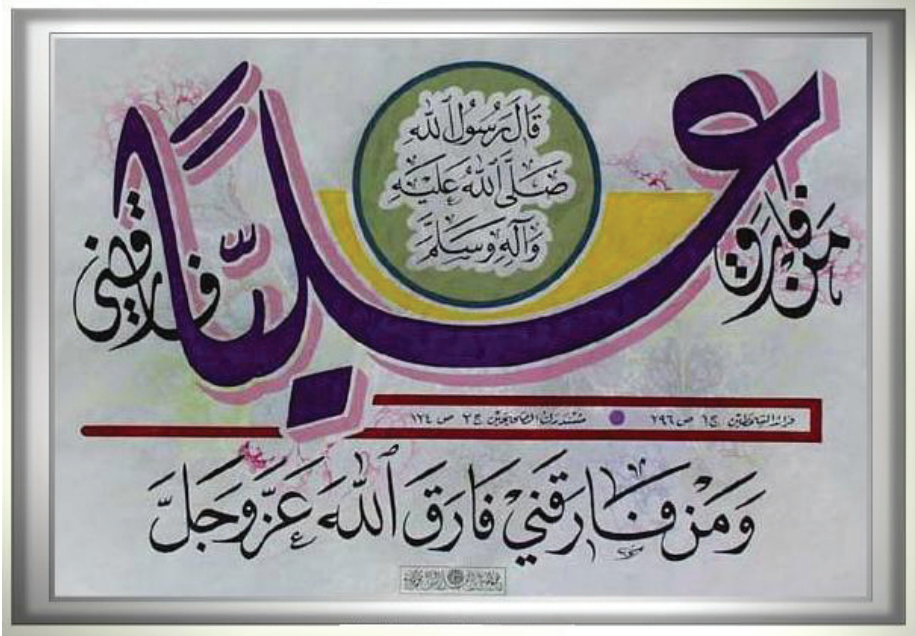 قَالَ رَسُولُ اللهِ
صَلَّى اللهُ عَلَيْهِ
وَآلِهِ وَسَلَّمَ
مَنْ فَارَقَ عَلِيًّا فَارَقَنِي
فرائد السمطين ج١ ص ٢٩٦ • مستدرك الصحيحين ج٣ ص ١٢٤
وَمَنْ فَارَقَنِي فَارَقَ اللهَ عَزَّوَجَلَّ